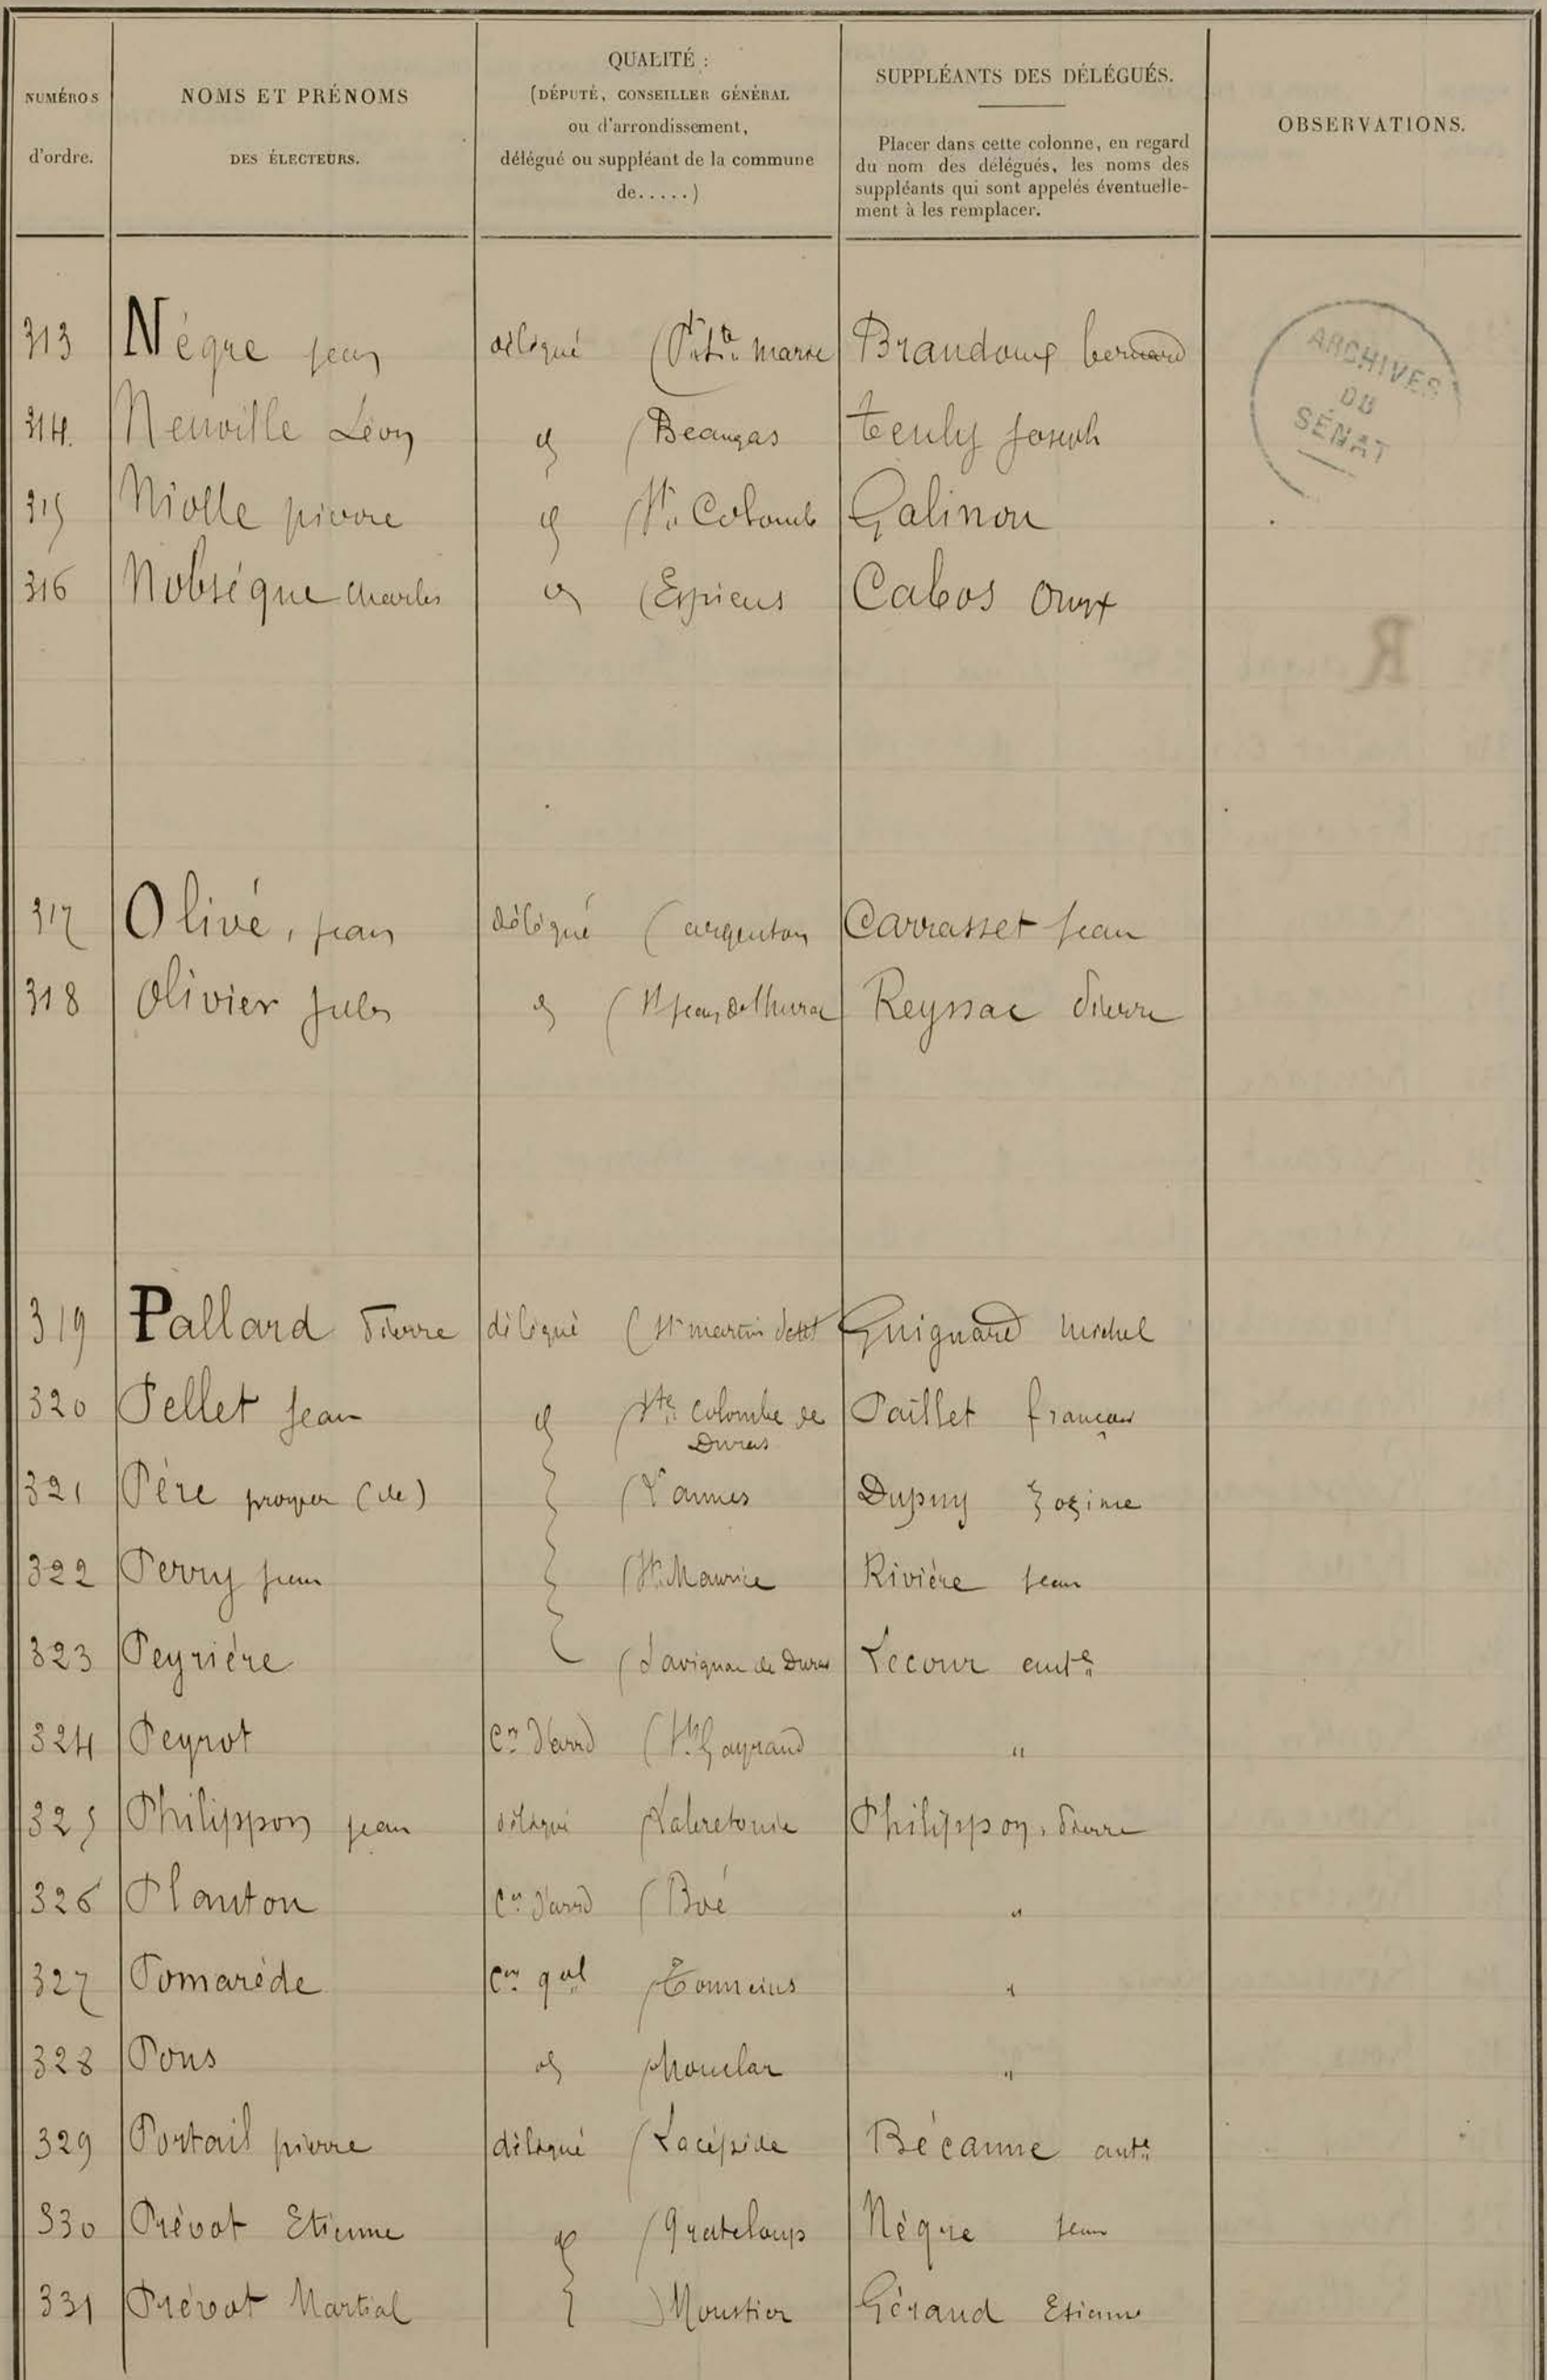 NUMÉROS d'ordre.
NOMS ET PRÉNOMS DES ÉLECTEURS.
QUALITÉ :
(DÉPUTÉ, CONSEILLER GÉNÉRAL
ou d'arrondissement,
délégué ou suppléant de la commune
de.....)
SUPPLÉANTS DES DÉLÉGUÉS.
Placer dans cette colonne, en regard
du nom des délégués, les noms des
suppléants qui sont appelés éventuelle-
ment à les remplacer.
OBSERVATIONS.
ARCHIVES
DU
SÉNAT
313 Nègre jean délégué ( marie Brandoux bernard
314. Neuville Léon d (Beaugas teuly joseph
315 Niolle pierre d (Ste Colomb Galinou
316 Nobségue charles d (Espiens Cabos
317 Olivé, jean délégué (argenton Carrasset jean
318 Olivier jules d (St jean de thurac Reyssac Pierre
319 Pallard Pierre délégué (St martin Guignard michel
320 Pellet jean d (Ste colombe de Duras Paillet françois
321 Père prosper (de) (Vannes Dupuy Zozime
322 Perry jean (St. Maurice Rivière jean
323 Peyrière (Savignac de Duras Lecour ante
324 Peyrot Cer d'arrd (St. Gayrand "
325 Philippon jean délégué (Labretonie Philippon, Pierre
326 Planton Cer d'arrd (Boé "
327 Pomarède Cer gal (Tonneins "
328 Pons d (Monclar "
329 Portail pierre délégué (Lacépède Bécanne ante
330 Prévot Etienne d (Grateloup Nègre jean
331 Prévot Martial (Moustier Géraud Etienne